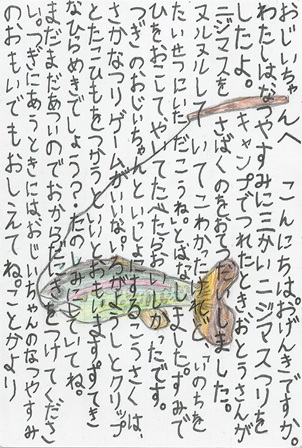 おじいちゃんへ　こんにちはおげんきですか。
わたしはなつやすみに三かいニジマスつりを
したよ。キャンプでつれたときおとうさんが
ニジマスをさばくのをおてつだいしました。
ヌルヌルしていてこわかったけど、いのちを
たいせつにいただこうね。とはなしました。すみで
ひをおこして、やいてたべたらおいしかったです。
つぎの、おじいちゃんといっしょにするこうさくは、
さかなつりゲームがいいな。いろがようしとクリップ
とたこひもをつかうといいとおもいます。すてき
なひらめきでしょう？たのしみにしていてね。
まだまだあついのでおからだにきをつけてくださ
い。つぎにあうときには、おじいちゃんのなつやすみ
のおもいでもおしえてね。ことかより